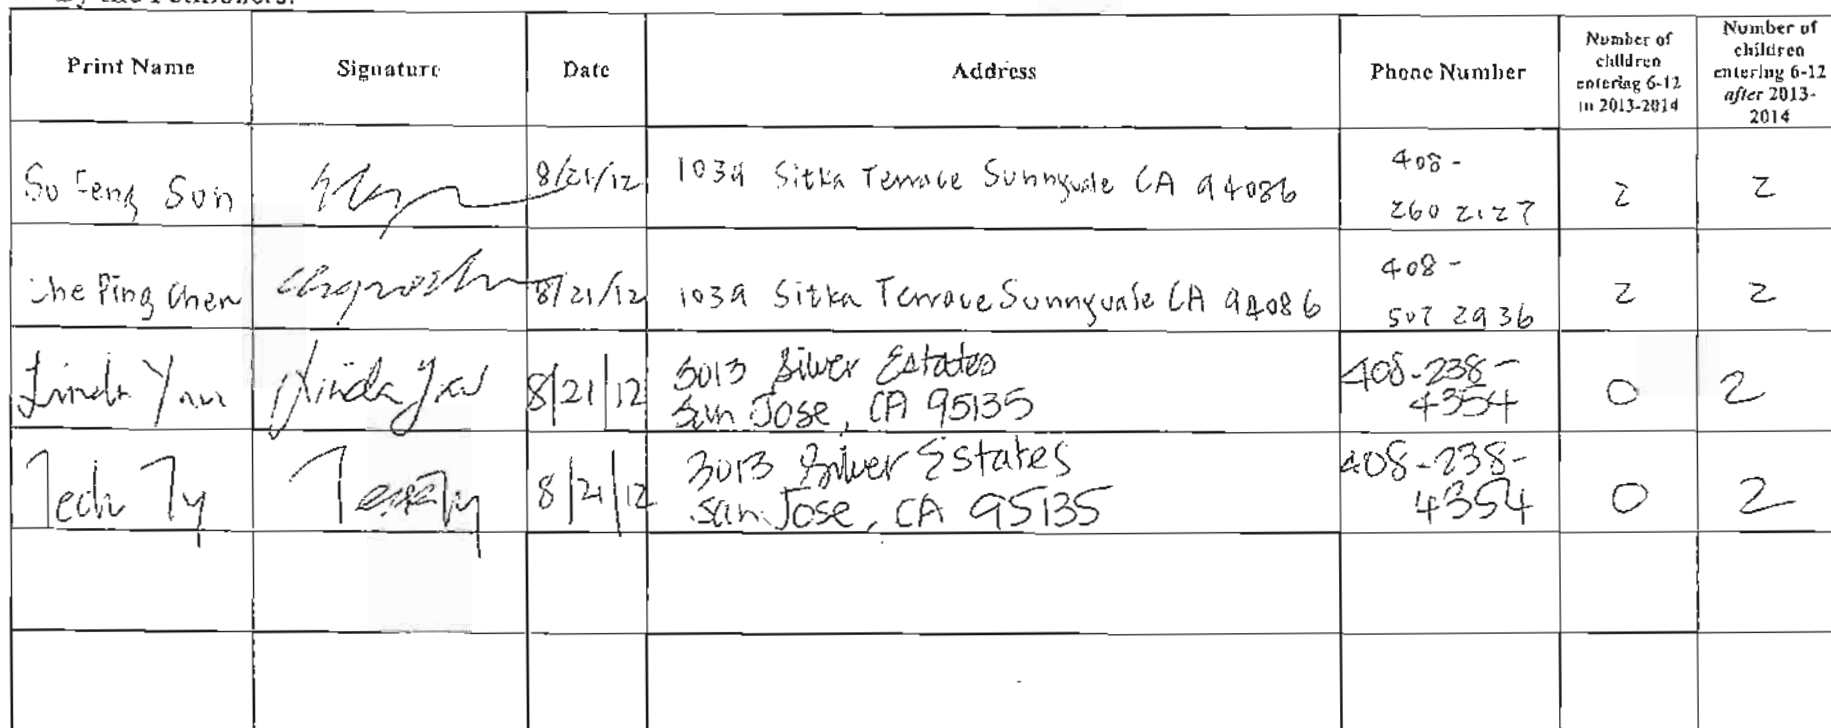 by the Petitioners.
Print Name
Signature
Date
Address
Phone Number
Number of
children
entering 6-12
in 2013-2014
Number of
children
entering 6-12
after 2013-
2014
Su Feng Sun
8/21/12
1039 Sitka Terrace Sunnyvale CA 94086
408-
260 2127
2
2
Che Ping Chen
8/21/12
1039 Sitka Terrace Sunnyvale CA 94086
408-
507 2936
2
2
Linda Yau
Linda Yau
8/21/12
3013 Silver Estates
San Jose, CA 95135
408-238-
4354
0
2
Tech Ty
8/21/12
3013 Silver Estates
San Jose, CA 95135
408-238-
4354
0
2